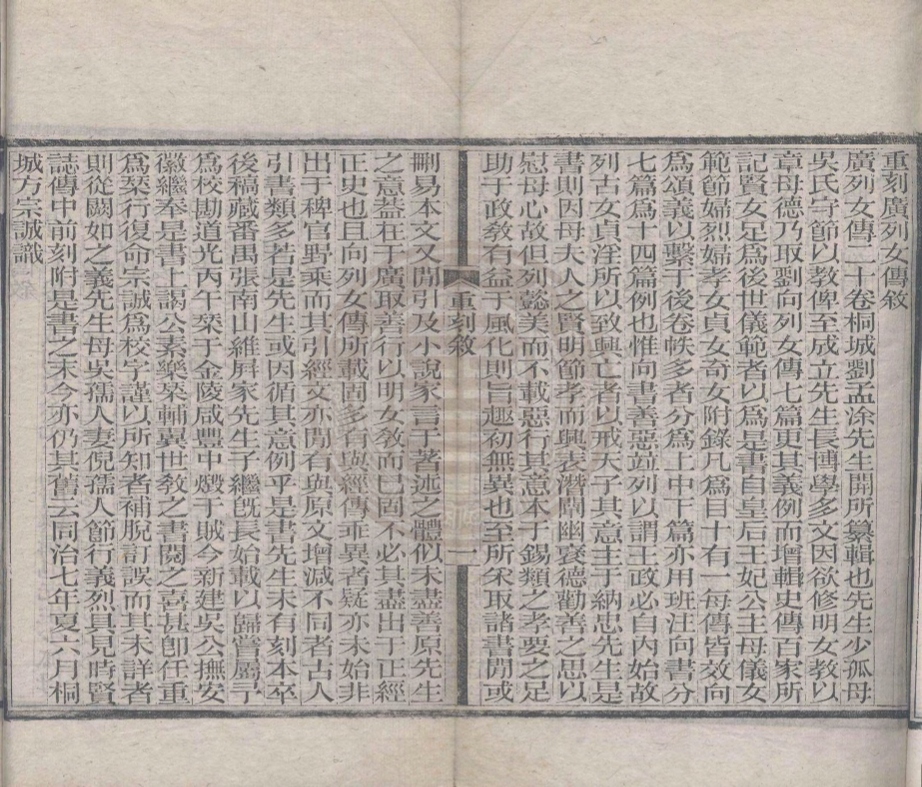 重刻廣列女傳敘
廣列女傳二十卷桐城劉孟涂先生開所纂輯也先生少孤母
吳氏守節以教俾至成立先生長博學多文因欲修明女教以
章母德乃取劉向列女傳七篇更其義例而增輯史傳百家所
記賢女足爲後世儀範者以爲是書自皇后王妃公主母儀女
範節婦烈婦孝女貞女奇女附錄凡爲目十有一每傳皆效向
爲頌義以繫于後卷帙多者分爲上中下篇亦用班注向書分
七篇爲十四篇例也惟向書善惡竝列以謂王政必自內始故
列古女貞淫所以致興亡者以戒天子其意主于納忠先生是
書則因母夫人之賢明節孝而興表潛闡幽褒德勸善之思以
慰母心故但列懿美而不載惡行其意本于錫類之孝要之足
助于政敎有益于風化則旨趣初無異也至所采取諸書閒或
重刻敘
一
刪易本文又閒引及小說家言于著述之體似未盡善原先生
之意葢在于廣取善行以明女敎而已固不必其盡出于正經
正史也且向列女傳所載固多有與經傳乖異者疑亦未始非
出于稗官野乘而其引經文亦閒有與原文增減不同者古人
引書類多若是先生或因循其意例乎是書先生未有刻本卒
後稿藏番禺張南山維屏家先生子繼旣長始載以歸嘗屬予
爲校勘道光丙午栞于金陵咸豐中燬于賊今新建吳公撫安
徽繼奉是書上謁公素樂蒐輔翼世敎之書閱之喜甚卽任重
爲栞行復命宗誠爲校字謹以所知者補脫訂誤而其未詳者
則從闕如之義先生母吳孺人妻倪孺人節行義烈具見時賢
誌傳中前刻附是書之末今亦仍其舊云同治七年夏六月桐
城方宗誠識